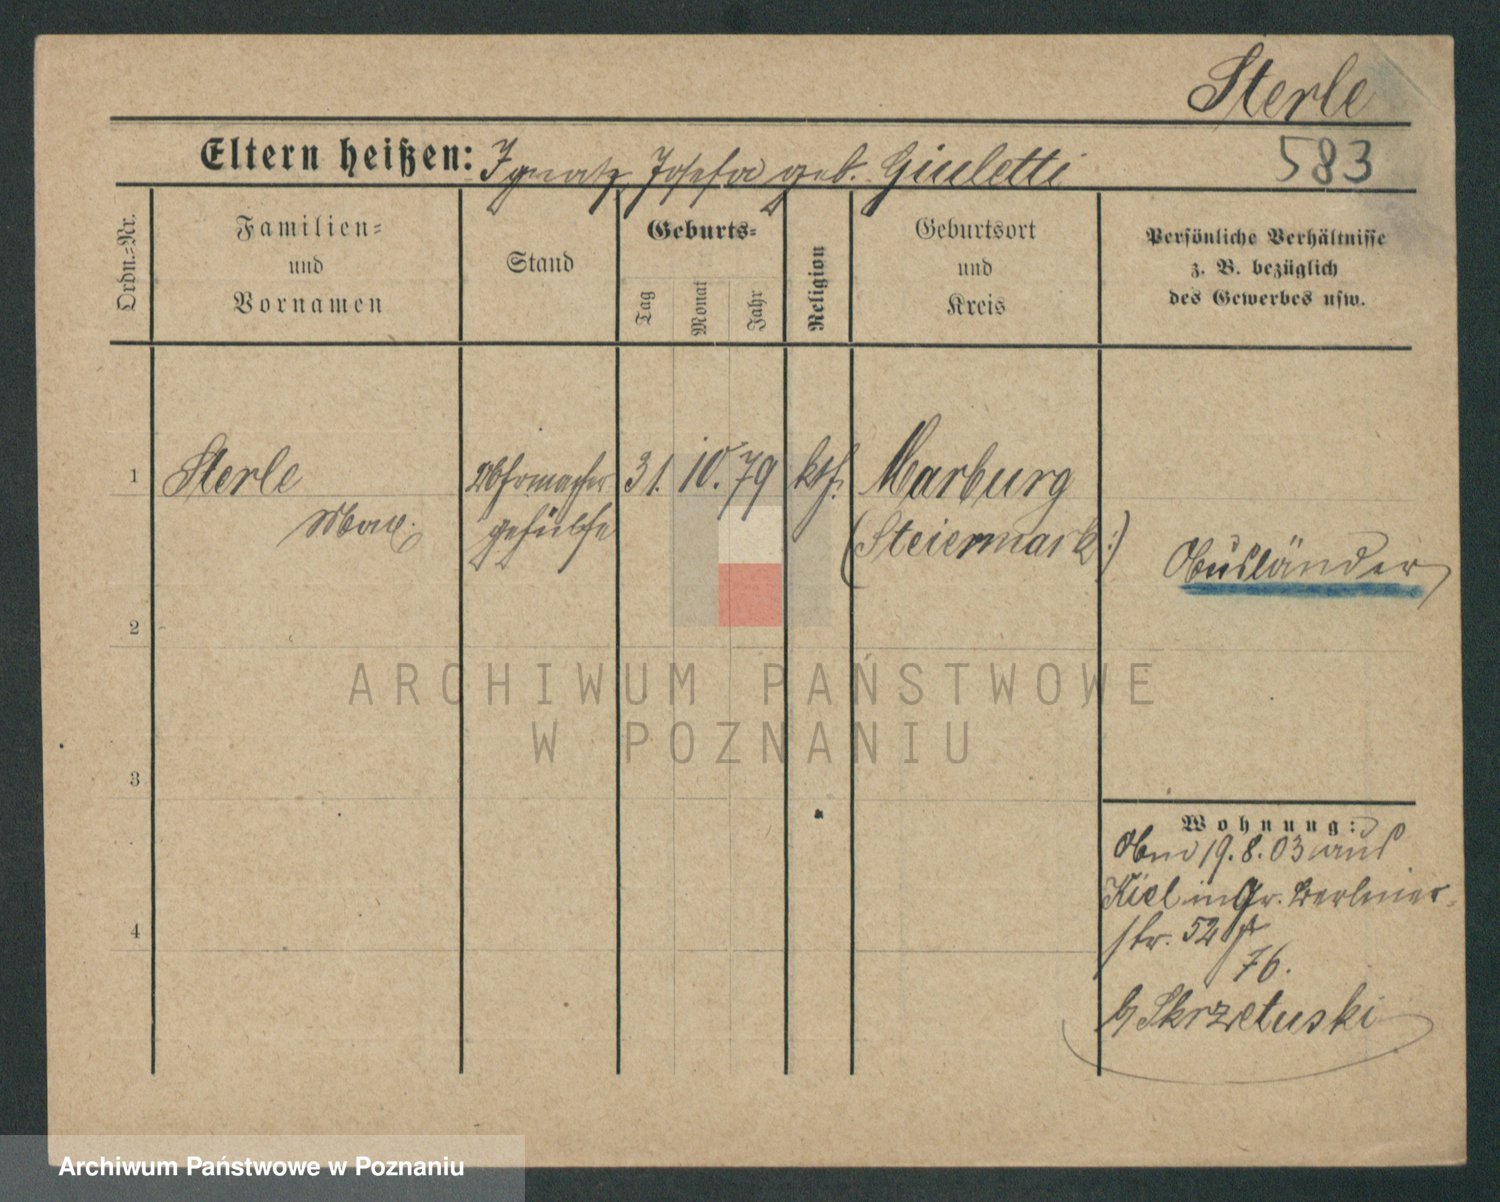 Sterle
Eltern heißen: Ignatz Josefa geb. Giuletti
583
Ordn.-Nr.
Familien-
und
Vornamen
Stand
Geburts-
Tag
Monat
Jahr
Religion
Geburtsort
und
Kreis
Persönliche Verhältnisse
z. B. bezüglich
des Gewerbes usw.
1 Sterle Uhrmacher 31. 10. 79 kth. Marburg
Max. gehülfe (Steiermark:)
Ausländer
2
ARCHIWUM PAŃSTWOWE
W POZNANIU
3
Wohnung:
Am 19. 8. 03 aus
Kiel in Gr. Berliner-
str. 52
76.
b/ Skrzetuski
4
Archiwum Państwowe w Poznaniu